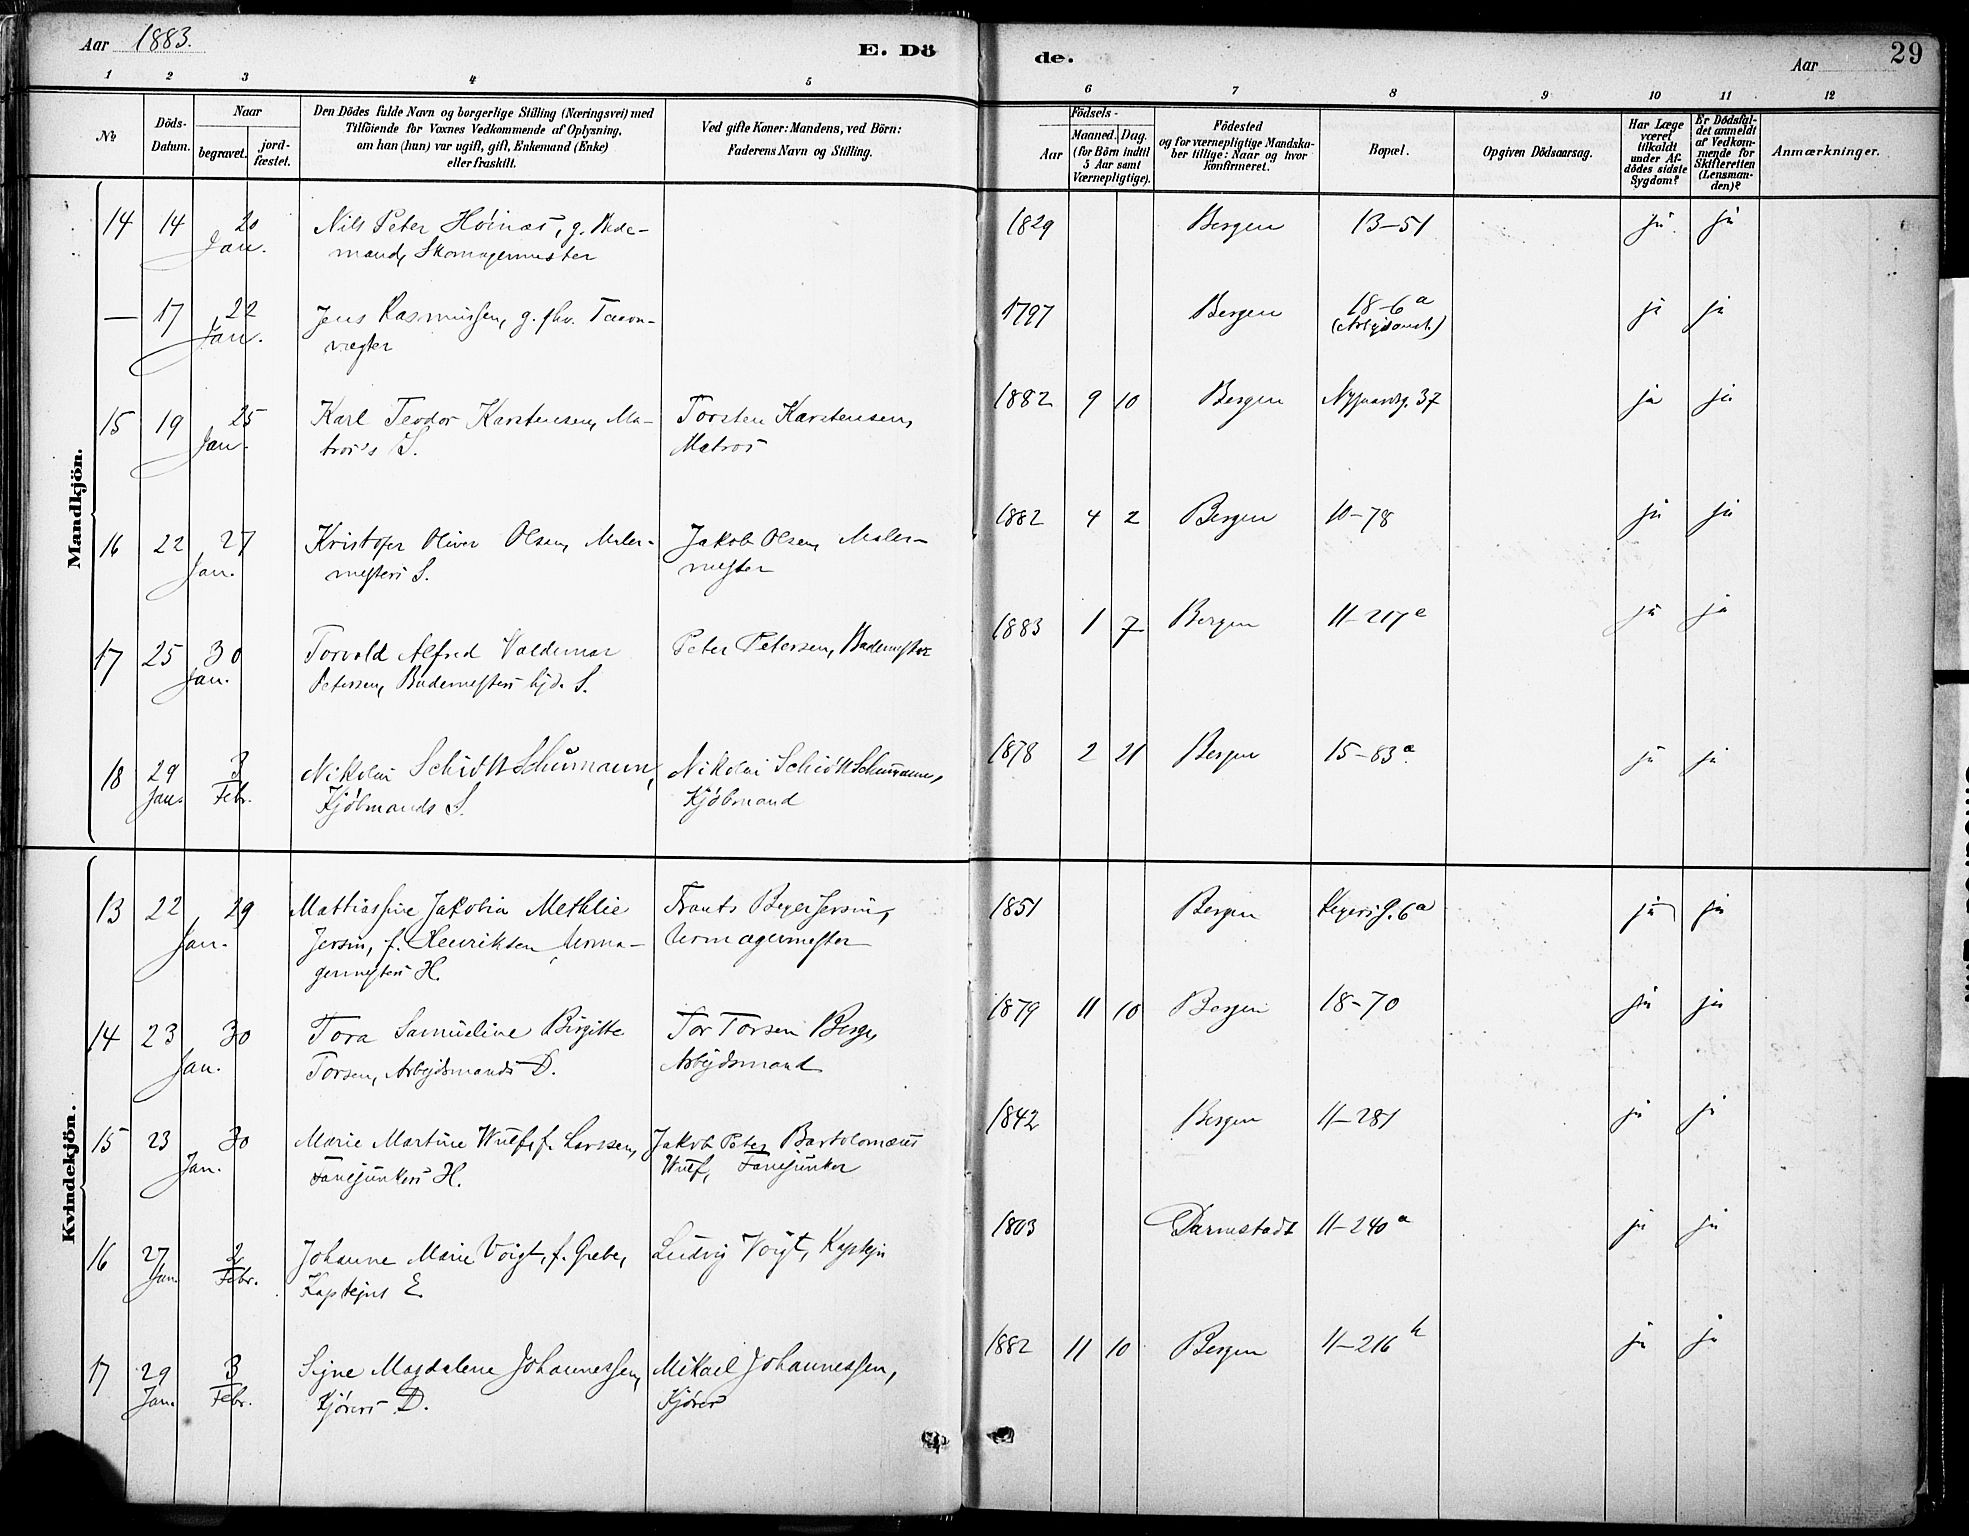 Aar 1883.
E. Dö
de.
Aar
29
1 2 3 4 5 6 7 8 9 10 11 12
No
Döds-Datum.
Naar
begravet.
jord-fæstet.
Den Dödes fulde Navn og borgerlige Stilling (Næringsvei) med
Tilföiende for Voxnes Vedkommende af Oplysning,
om han (hun) var ugift, gift, Enkemand (Enke)
eller fraskilt.
Ved gifte Koner: Mandens, ved Börn:
Faderens Navn og Stilling.
Födsels-
Aar
Maaned. Dag.
(for Börn indtil
5 Aar samt
Værnepligtige).
Födested
og for værnepligtige Mandska-
ber tillige: Naar og hvor
konfirmeret.
Bopæl.
Opgiven Dödsaarsag.
Har Læge
været
tilkaldt
under Af-
dödes sidste
Sygdom?
Er Dödsfal-
det anmeldt
af Vedkom-
mende for
Skifteretten
(Lensman-
den)?
Anmærkninger.
Mandkjön.
14 14 20 Nils Peter Hóinæs, g. 1829 Bergen 13-51 ja ja
Jan. mand, Skomagermester
— 17 22 Jens Rasmussen, g. fhv. Taarn- 1797 Bergen 18-6a ja ja
Jan. vægter
15 19 25 Karl Teodor Karstensen, Ma- Torsten Karstensen, 1882 9 10 Bergen Nygaardsg. 37 ja ja
Jan. tros's S. Matros
16 22 27 Kristofer Oliver Olsen, Maler- Jakob Olsen, Maler- 1882 4 2 Bergen 10-78 ja ja
Jan. mesters S. mester
17 25 30 Torvald Alfred Valdemar Peter Petersen, Bademester 1883 1 7 Bergen 11-217e ja ja
Jan. Petersen, Bademesters hjd. S.
18 29 3 Nikolai Schiøtt Schumann, Nikolai Schiøtt Schumann, 1878 2 21 Bergen 15-83a ja ja
Jan. Febr. Kjøbmands S. Kjøbmand
Kvindekjön.
13 22 29 Mattiassine Jakobia Methlie Frants Beyer Jersin, 1851 Bergen 6a ja ja
Jan. Jersin, f. Henriksen, Urma- Urmagermester
germesters H.
14 23 30 Tora Samueline Birgitte Tor Torsen Berge, 1879 11 10 Bergen 18-70 ja ja
Jan. Torsen, Arbejdsmands D. Arbejdsmand
15 23 30 Marie Martine Wulf, f. Larssen, Jakob Peter Bartolomæus 1842 Bergen 11-281 ja ja
Jan. Fanejunkers H. Wulf, Fanejunker
16 27 2 Johanne Marie Voigt, f. Grebe, Ludvig Voigt, Kaptejn 1803 Darmstadt 11-240a ja ja
Jan. Febr. Kaptejns E.
17 29 3 Signe Magdalene Johannessen, Mikael Johannessen, 1882 11 10 Bergen 11-216h ja ja
Jan. Febr. Kjørers D. Kjører